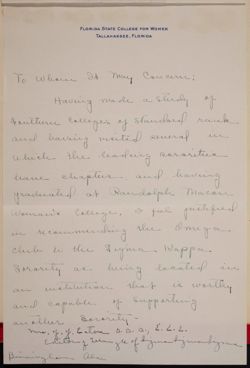 FLORIDA STATE COLLEGE FOR WOMEN
TALLAHASSEE, FLORIDA
To Whom It May Concern:
Having made a study of
Southern Colleges of Standard rank
and having visited several in
which the leading sororities
have chapters and having
graduated at Randolph Macon
Woman's College, I feel justified
in recommending the Omega
club to the Sigma Kappa
Sorority as being located in
an institution that is worthy
and capable of supporting
another Sorority -
Mrs. J. J.
of Gamma
Birmingham Ala